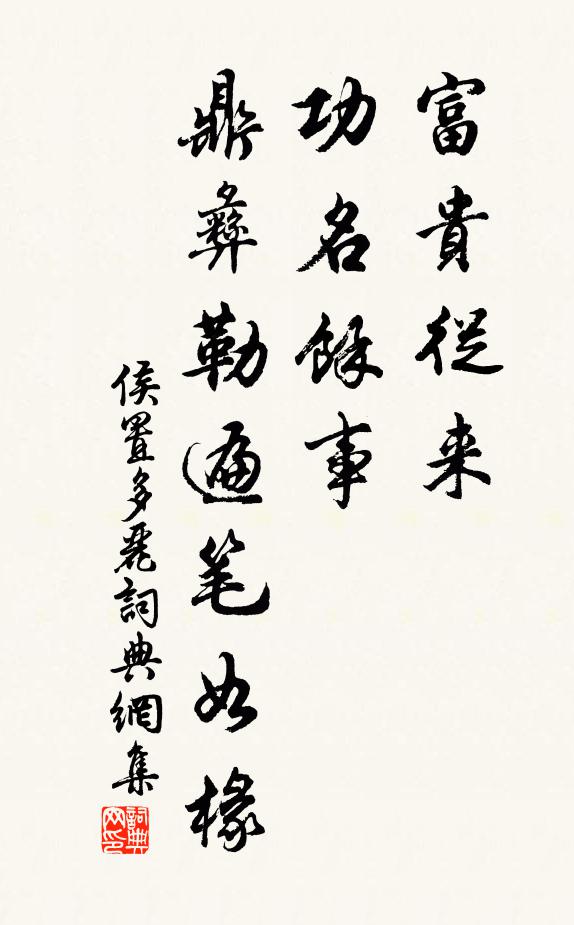 富貴從来
功名餘事
鼎彝勒遍笔如椽
侯置多麗詞典網集
詞典网印